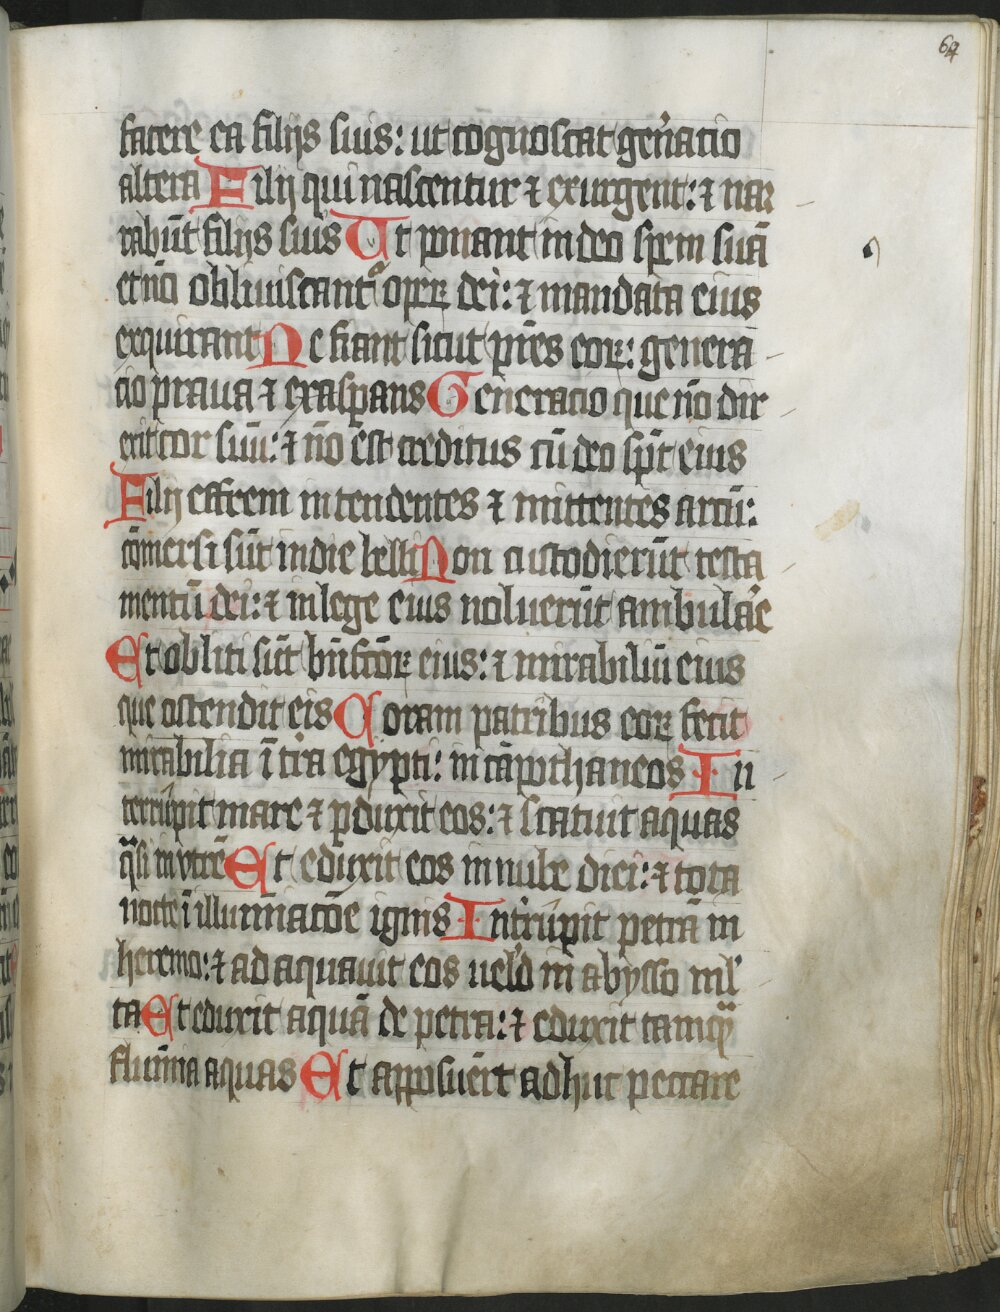 64
facere ea filijs suis: ut cognoscat gen̄acio
altera Filij qui nascentur ⁊ exurgent: ⁊ nar
rabūt filijs suis Ut ponant in deo spem suā
et nō obliuiscantᷣ operꝝ dei: ⁊ mandata eius
exquirant Ne fiant sicut pr̄es eorꝝ: genera
cio praua ⁊ exasꝑans Generacio que nō dir
exit cor suū: ⁊ nō est creditus cū deo sp̄t eius
Filij effrem intendentes ⁊ mittentes arcū:
cōuersi sūt in die belli Non custodierūt testa
mentū dei: ⁊ in lege eius noluerūt ambulaꝛ̄e
Et obliti sūt bn̄fcōrꝝ eius: ⁊ mirabiliū eius
que ostendit eis Coram patribus eorꝝ fecit
mirabilia ī tr̄a egypti: in cāpo thaneos In
terrūpit mare ⁊ ꝑduxit eos: ⁊ statuit aquas
q̄si in vtre Et eduxit eos in nube diei: ⁊ tota
nocte ī illuminacōe ignis Intr̄rupit petrā in
heremo: ⁊ adaquauit eos uelđ in abysso ml̓
ta Et eduxit aquā de petra: ⁊ eduxit tamqͣ̄
flumīa aquas Et apposuer̄t adhuc peccare